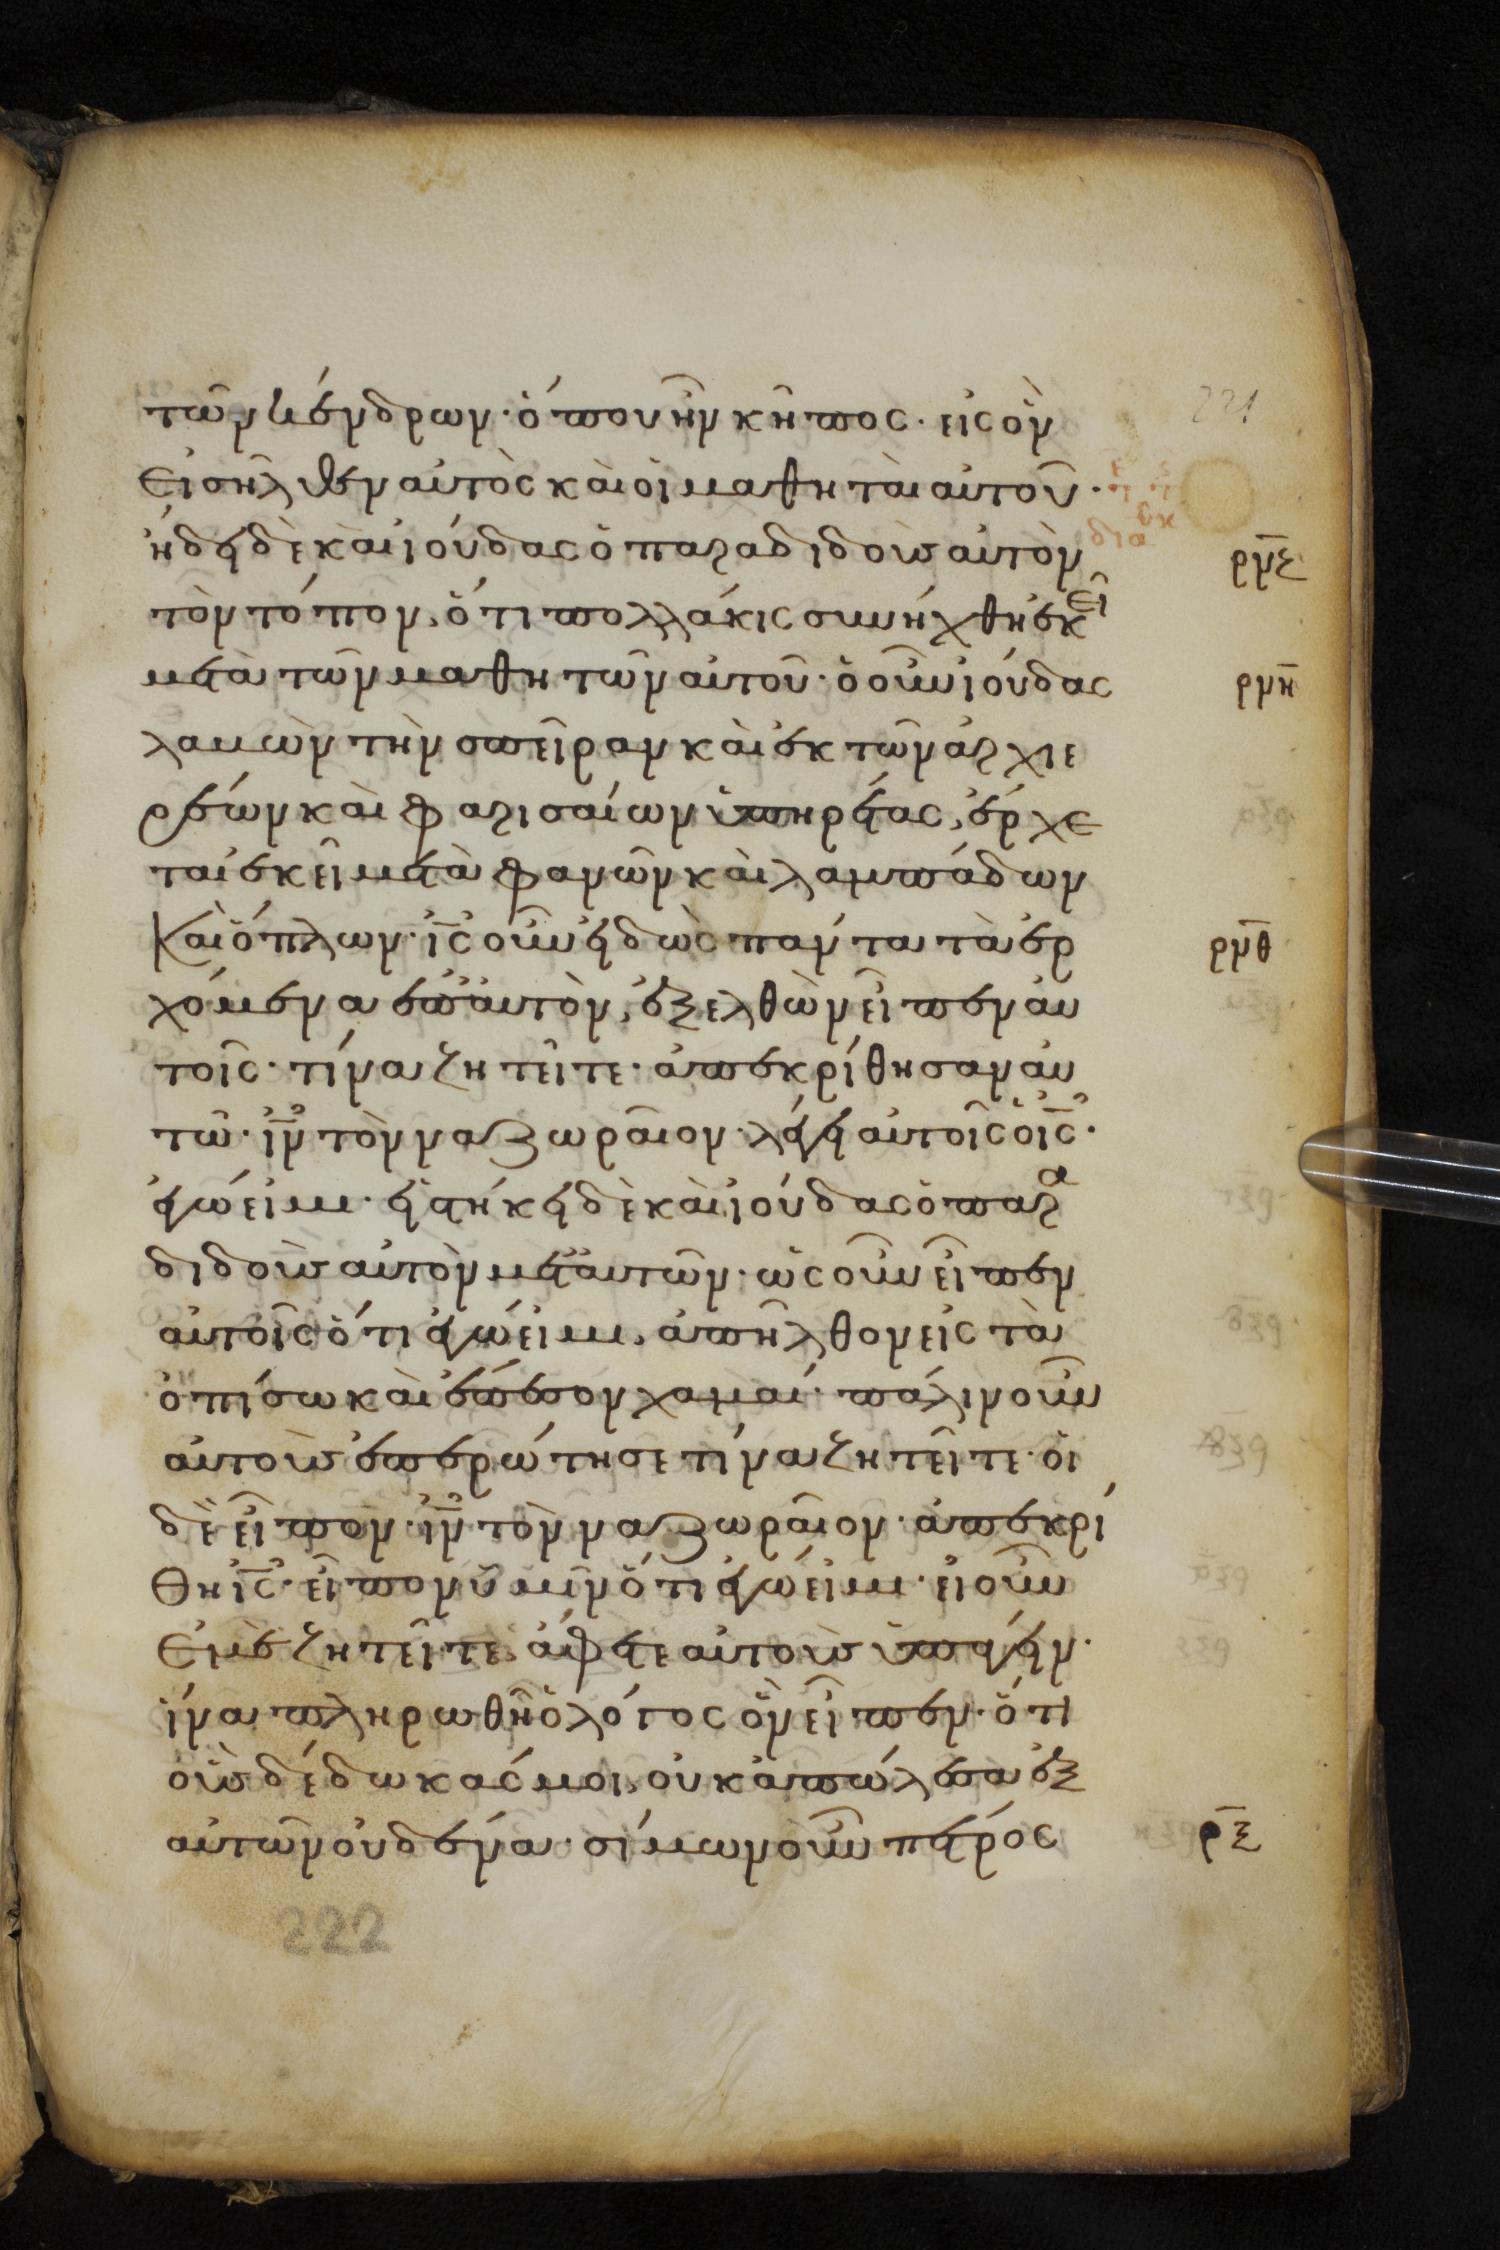 221
τῶν κένδρων· ὅπου ἦν κῆπος· εἰς ὃν
εἰσῆλθεν αὐτὸς καὶ οἱ μαθηταὶ αὐτοῦ·
ἤδει δὲ καὶ ἰούδας ὁ παραδιδοὺς αὐτὸν
ρνζ
τὸν τόπον, ὅτι πολλάκις συνήχθη ἐκεῖ
μετὰ τῶν μαθητῶν αὐτοῦ· ὁ οὖν ἰούδας
ρνη
λαβὼν τὴν σπεῖραν καὶ ἐκ τῶν ἀρχιε
ρέων καὶ φαρισαίων ὑπηρέτας, ἔρχε
ται ἐκεῖ μετὰ φανῶν καὶ λαμπάδων
καὶ ὅπλων· ἰς οὖν εἰδὼς πάντα τὰ ἐρ
ρνθ
χόμενα ἐπ' αὐτὸν, ἐξελθὼν εἶπεν αὐ
τοῖς· τίνα ζητεῖτε· ἀπεκρίθησαν αὐ
τῶ· ἰν τὸν ναζωραῖον· λέγει αὐτοῖς ὁ ις·
ἐγώ εἰμι· εἱστήκει δὲ καὶ ἰούδας ὁ παρα
διδοὺς αὐτὸν μετ' αὐτῶν· ὡς οὖν εἶπεν
αὐτοῖς ὅτι ἐγώ εἰμι, ἀπῆλθον εἰς τὰ
ὀπίσω καὶ ἔπεσον χαμαί· πάλιν οὖν
αὐτοὺς ἐπερώτησε τίνα ζητεῖτε· οἱ
δὲ εἶπον· ἰν τὸν ναζωραῖον· ἀπεκρί
θη ἰς· εἶπον ὑμῖν ὅτι ἐγώ εἰμι· εἰ οὖν
ἐμὲ ζητεῖτε, ἄφετε αὐτοὺς ὑπάγειν·
ἵνα πληρωθῆ ὁ λόγος ὃν εἶπεν· ὅτι
οὓς δέδωκάς μοι, οὐκ ἀπώλεσα ἐξ
αὐτῶν οὐδένα· σίμων οὖν πέτρος
ρξ
222